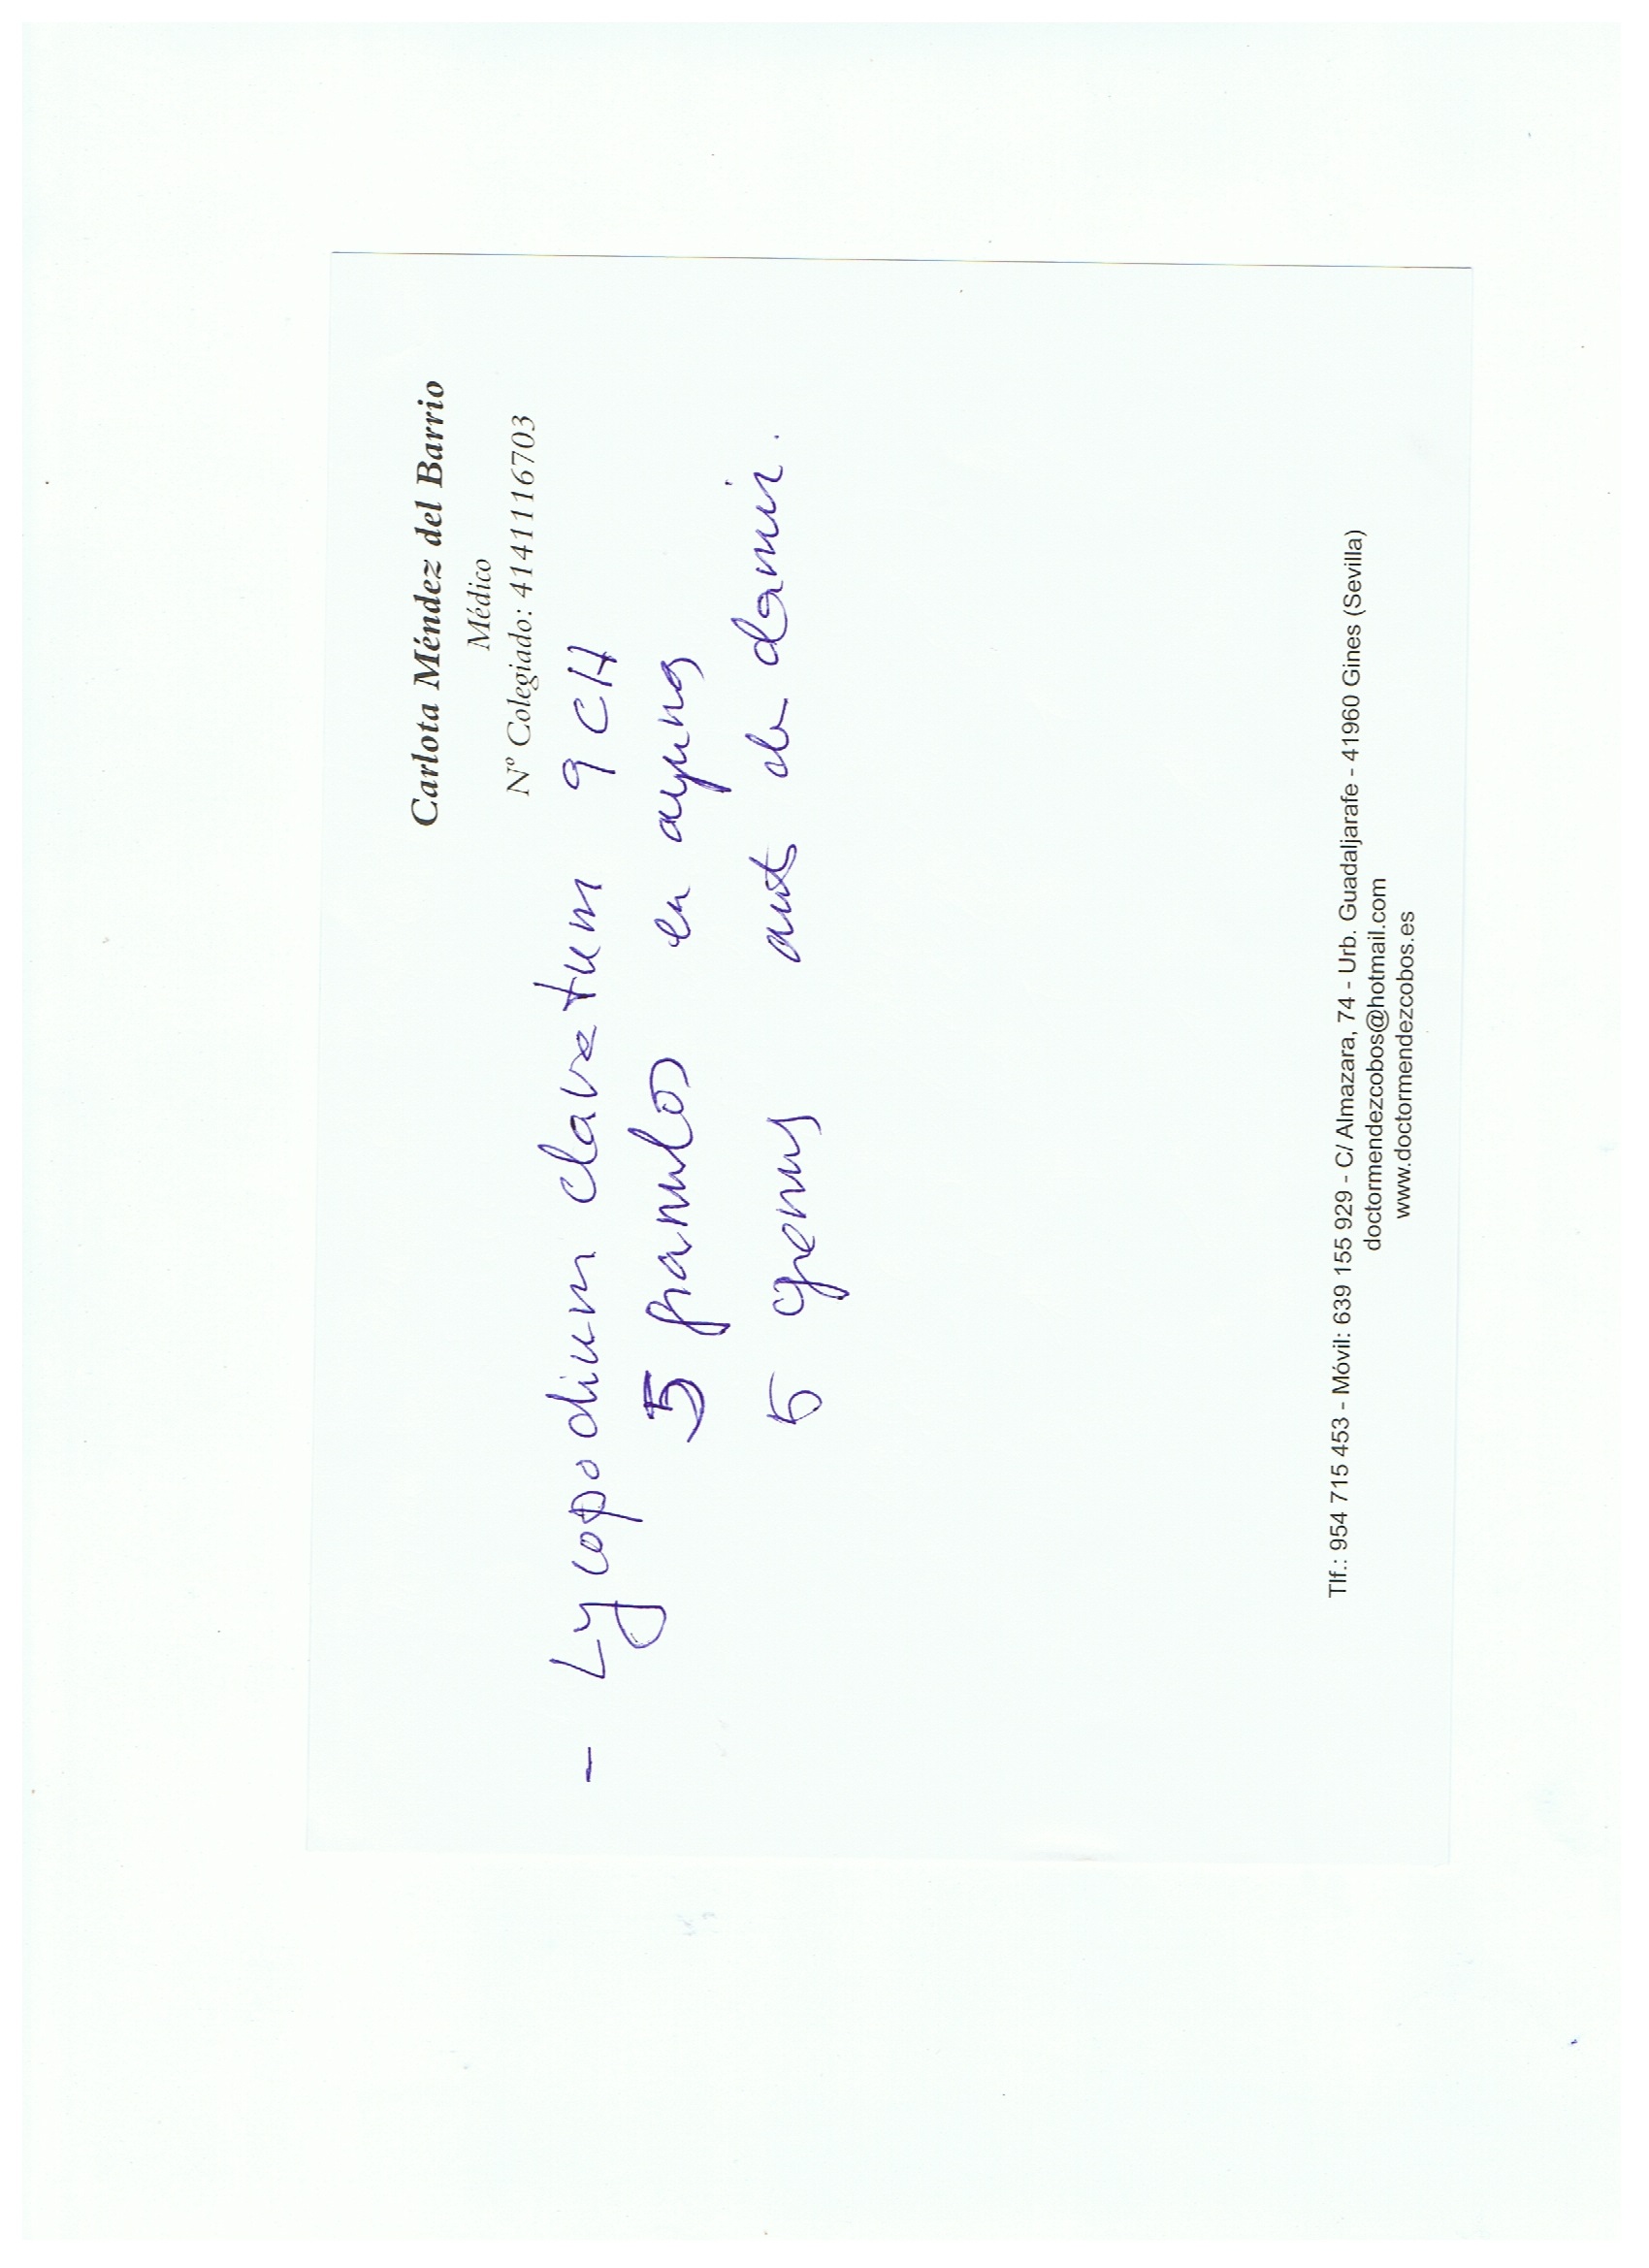 Carlota Méndez del Barrio
Médico
Nº Colegiado: 414116703
- Lycopodium clavatum 9 CH
5 granulos en ayunas
5 antes de dormir.
Tlf.: 954 715 453 - Móvil: 639 155 929 - C/ Almazara, 74 - Urb. Guadaljarafe - 41960 Gines (Sevilla)
doctormendezcobos@hotmail.com
www.doctormendezcobos.es